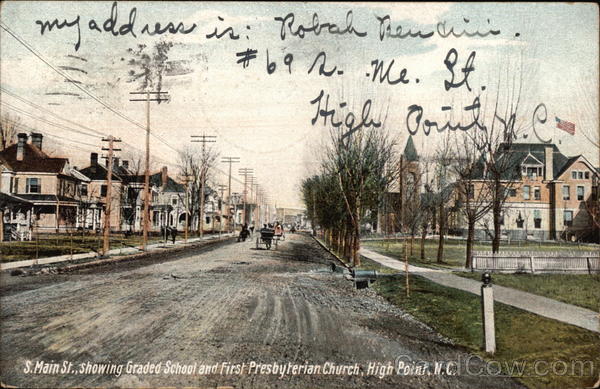 my address is: Robah
#69 S. Me. St.
High Point, N.C
S. Main St., showing Graded School and First Presbyterian Church, High Point, N.C.
CardCow.com